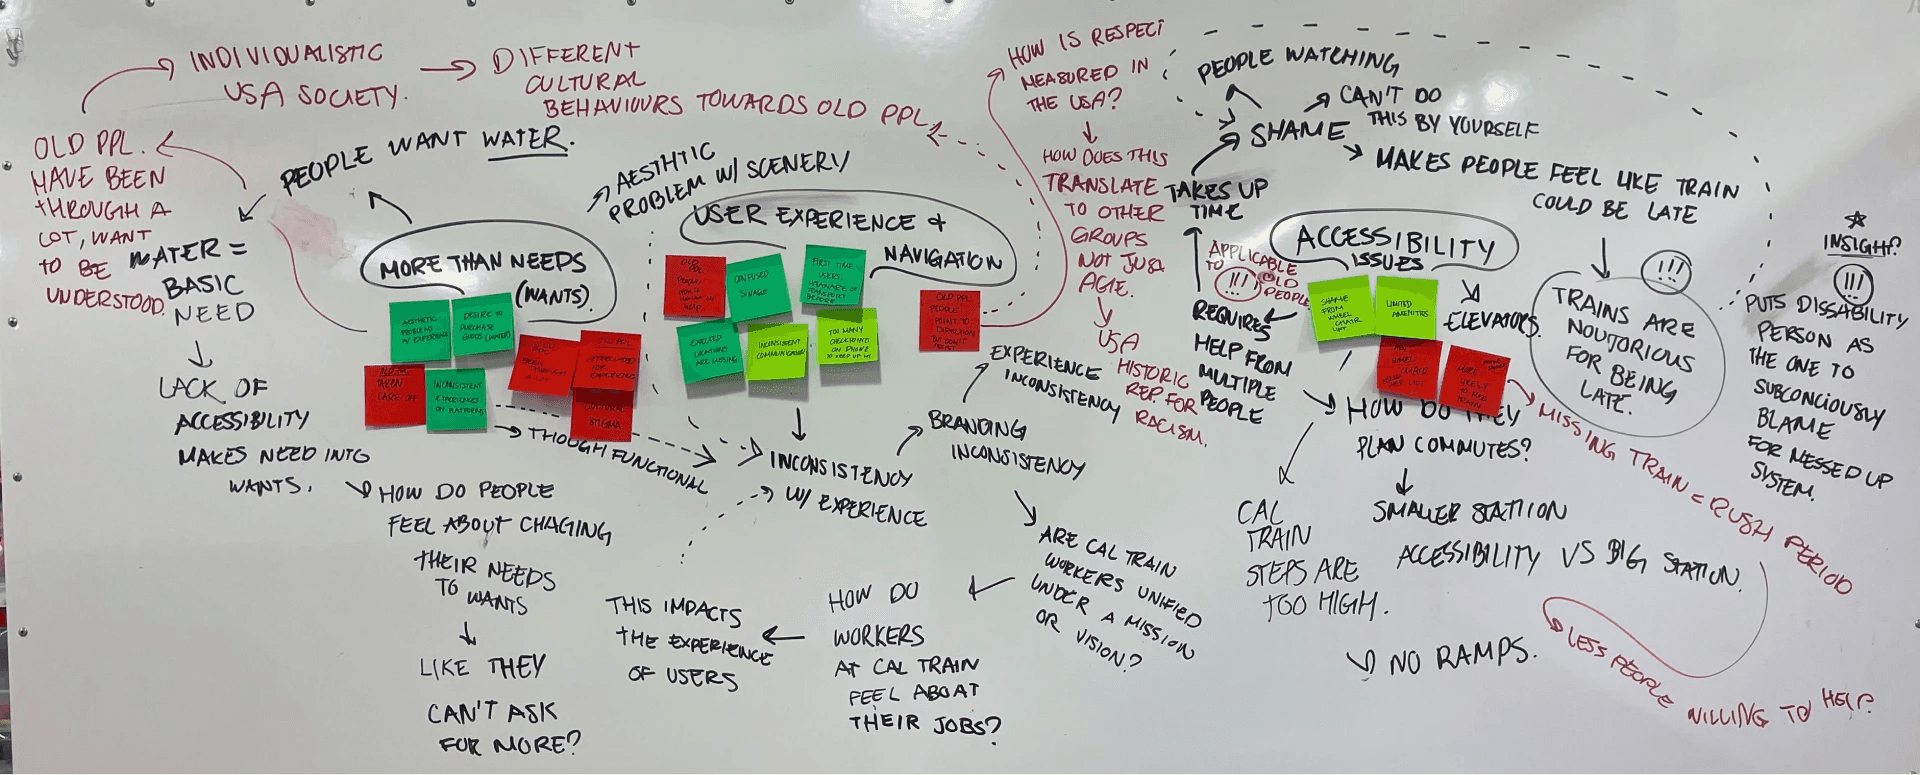 INDIVIDUALISTIC
USA SOCIETY.
DIFFERENT
CULTURAL
BEHAVIOURS TOWARDS OLD PPL.
OLD PPL.
HAVE BEEN
THROUGH A
LOT, WANT
TO BE
UNDERSTOOD.
PEOPLE WANT WATER.
WATER =
BASIC
NEED
LACK OF
ACCESSIBILITY
MAKES NEED INTO
WANTS.
HOW DO PEOPLE
FEEL ABOUT CHAGING
THEIR NEEDS
TO WANTS
LIKE THEY
CAN'T ASK
FOR MORE?
MORE THAN NEEDS
(WANTS).
AESTHETIC
PROBLEMS
W/ EXPERIENCE
DESIRE TO
PURCHASE
GOODS (WATER)
TAKEN
CARE OFF
INCONSISTENT
EXPERIENCES
ON PLATFORMS
CULTURAL
STIGMA
THOUGH FUNCTIONAL
AESTHTIC
PROBLEM W/ SCENERY
USER EXPERIENCE &
NAVIGATION
OLD
PPL
CONFUSED
SINAGE
FIRST TIME
USERS
UNAWARE OF
TRANSPORT
BEFORE
EXPECTED
LOCATIONS
ARE MISSING
INCONSISTENT
COMMUNICATION
TOO MANY
CHECKPOINTS
ON PHONE
TO KEEP UP W/
OLD PPL
PEOPLE
POINT TO
DIRECTION
BUT DON'T
INCONSISTENCY
W/ EXPERIENCE
BRANDING
INCONSISTENCY
EXPERIENCE
INCONSISTENCY
ARE CAL TRAIN
WORKERS UNIFIED
UNDER A MISSION
OR VISION?
HOW DO
WORKERS
AT CAL TRAIN
FEEL ABOAT
THEIR JOBS?
THIS IMPACTS
THE EXPERIENCE
OF USERS
HOW IS RESPECT
MEASURED IN
THE USA?
HOW DOES THIS
TRANSLATE
TO OTHER
GROUPS
NOT JUST
AGE.
USA
HISTORIC
REP FOR
RACISM.
PEOPLE WATCHING
SHAME
CAN'T DO
THIS BY YOURSELF
MAKES PEOPLE FEEL LIKE TRAIN
COULD BE LATE
TAKES UP
TIME
APPLICABLE
TO OLD
PEOPLE
!!!
REQUIRES
HELP FROM
MULTIPLE
PEOPLE
ACCESSIBILITY
ISSUES
SHAME
FROM
WHEEL
CHAIR
LIFT
LIMITED
AMENITIES
WHEEL
CHAIR
LIFT
MORE
LIKELY
TO MISS
TRAIN
ELEVATORS.
TRAINS ARE
NOUTORIOUS
FOR BEING
LATE.
!!!
INSIGHT?
!!!
PUTS DISSABILITY
PERSON AS
THE ONE TO
SUBCONCIOUSLY
BLAME
FOR MESSED UP
SYSTEM.
HOW DO THEY
PLAN COMMUTES?
SMALLER STATION
ACCESSIBILITY VS BIG STATION.
CAL
TRAIN
STEPS ARE
TOO HIGH.
NO RAMPS.
MISSING TRAIN = RUSH PERIOD
LESS PEOPLE WILLING TO HELP?